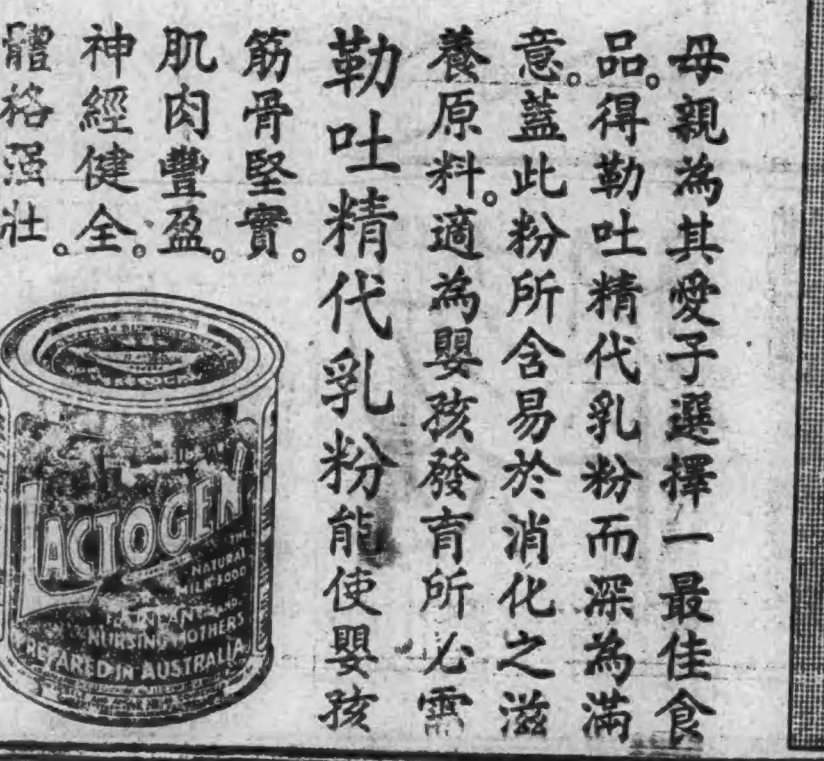 母親為其愛子選擇一最佳食
品。得勒吐精代乳粉而深為滿
意。蓋此粉所含易於消化之滋
養原料。適為嬰孩發育所必需
勒吐精代乳粉能使嬰孩
筋骨堅實。
肌肉豐盈。
神經健全。
體格强壯。
LACTOGEN
THE
NATURAL
MILK FOOD
FOR INFANTS AND
NURSING MOTHERS
PREPARED IN AUSTRALIA